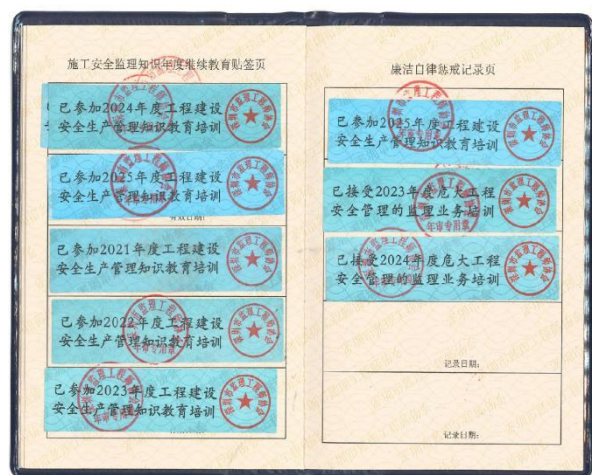 施工安全监理知识年度继续教育贴签页
已参加2024年度工程建设
安全生产管理知识教育培训
已参加2025年度工程建设
安全生产管理知识教育培训
有效日期:
已参加2021年度工程建设
安全生产管理知识教育培训
已参加2022年度工程建设
安全生产管理知识教育培训
已参加2023年度工程建设
安全生产管理知识教育培训
年审专用章
廉洁自律惩戒记录页
已参加2025年度工程建设
安全生产管理知识教育培训
年审专用章
已接受2023年度危大工程
安全管理的监理业务培训
年审专用章
已接受2024年度危大工程
安全管理的监理业务培训
年审专用章
记录日期:
记录日期: